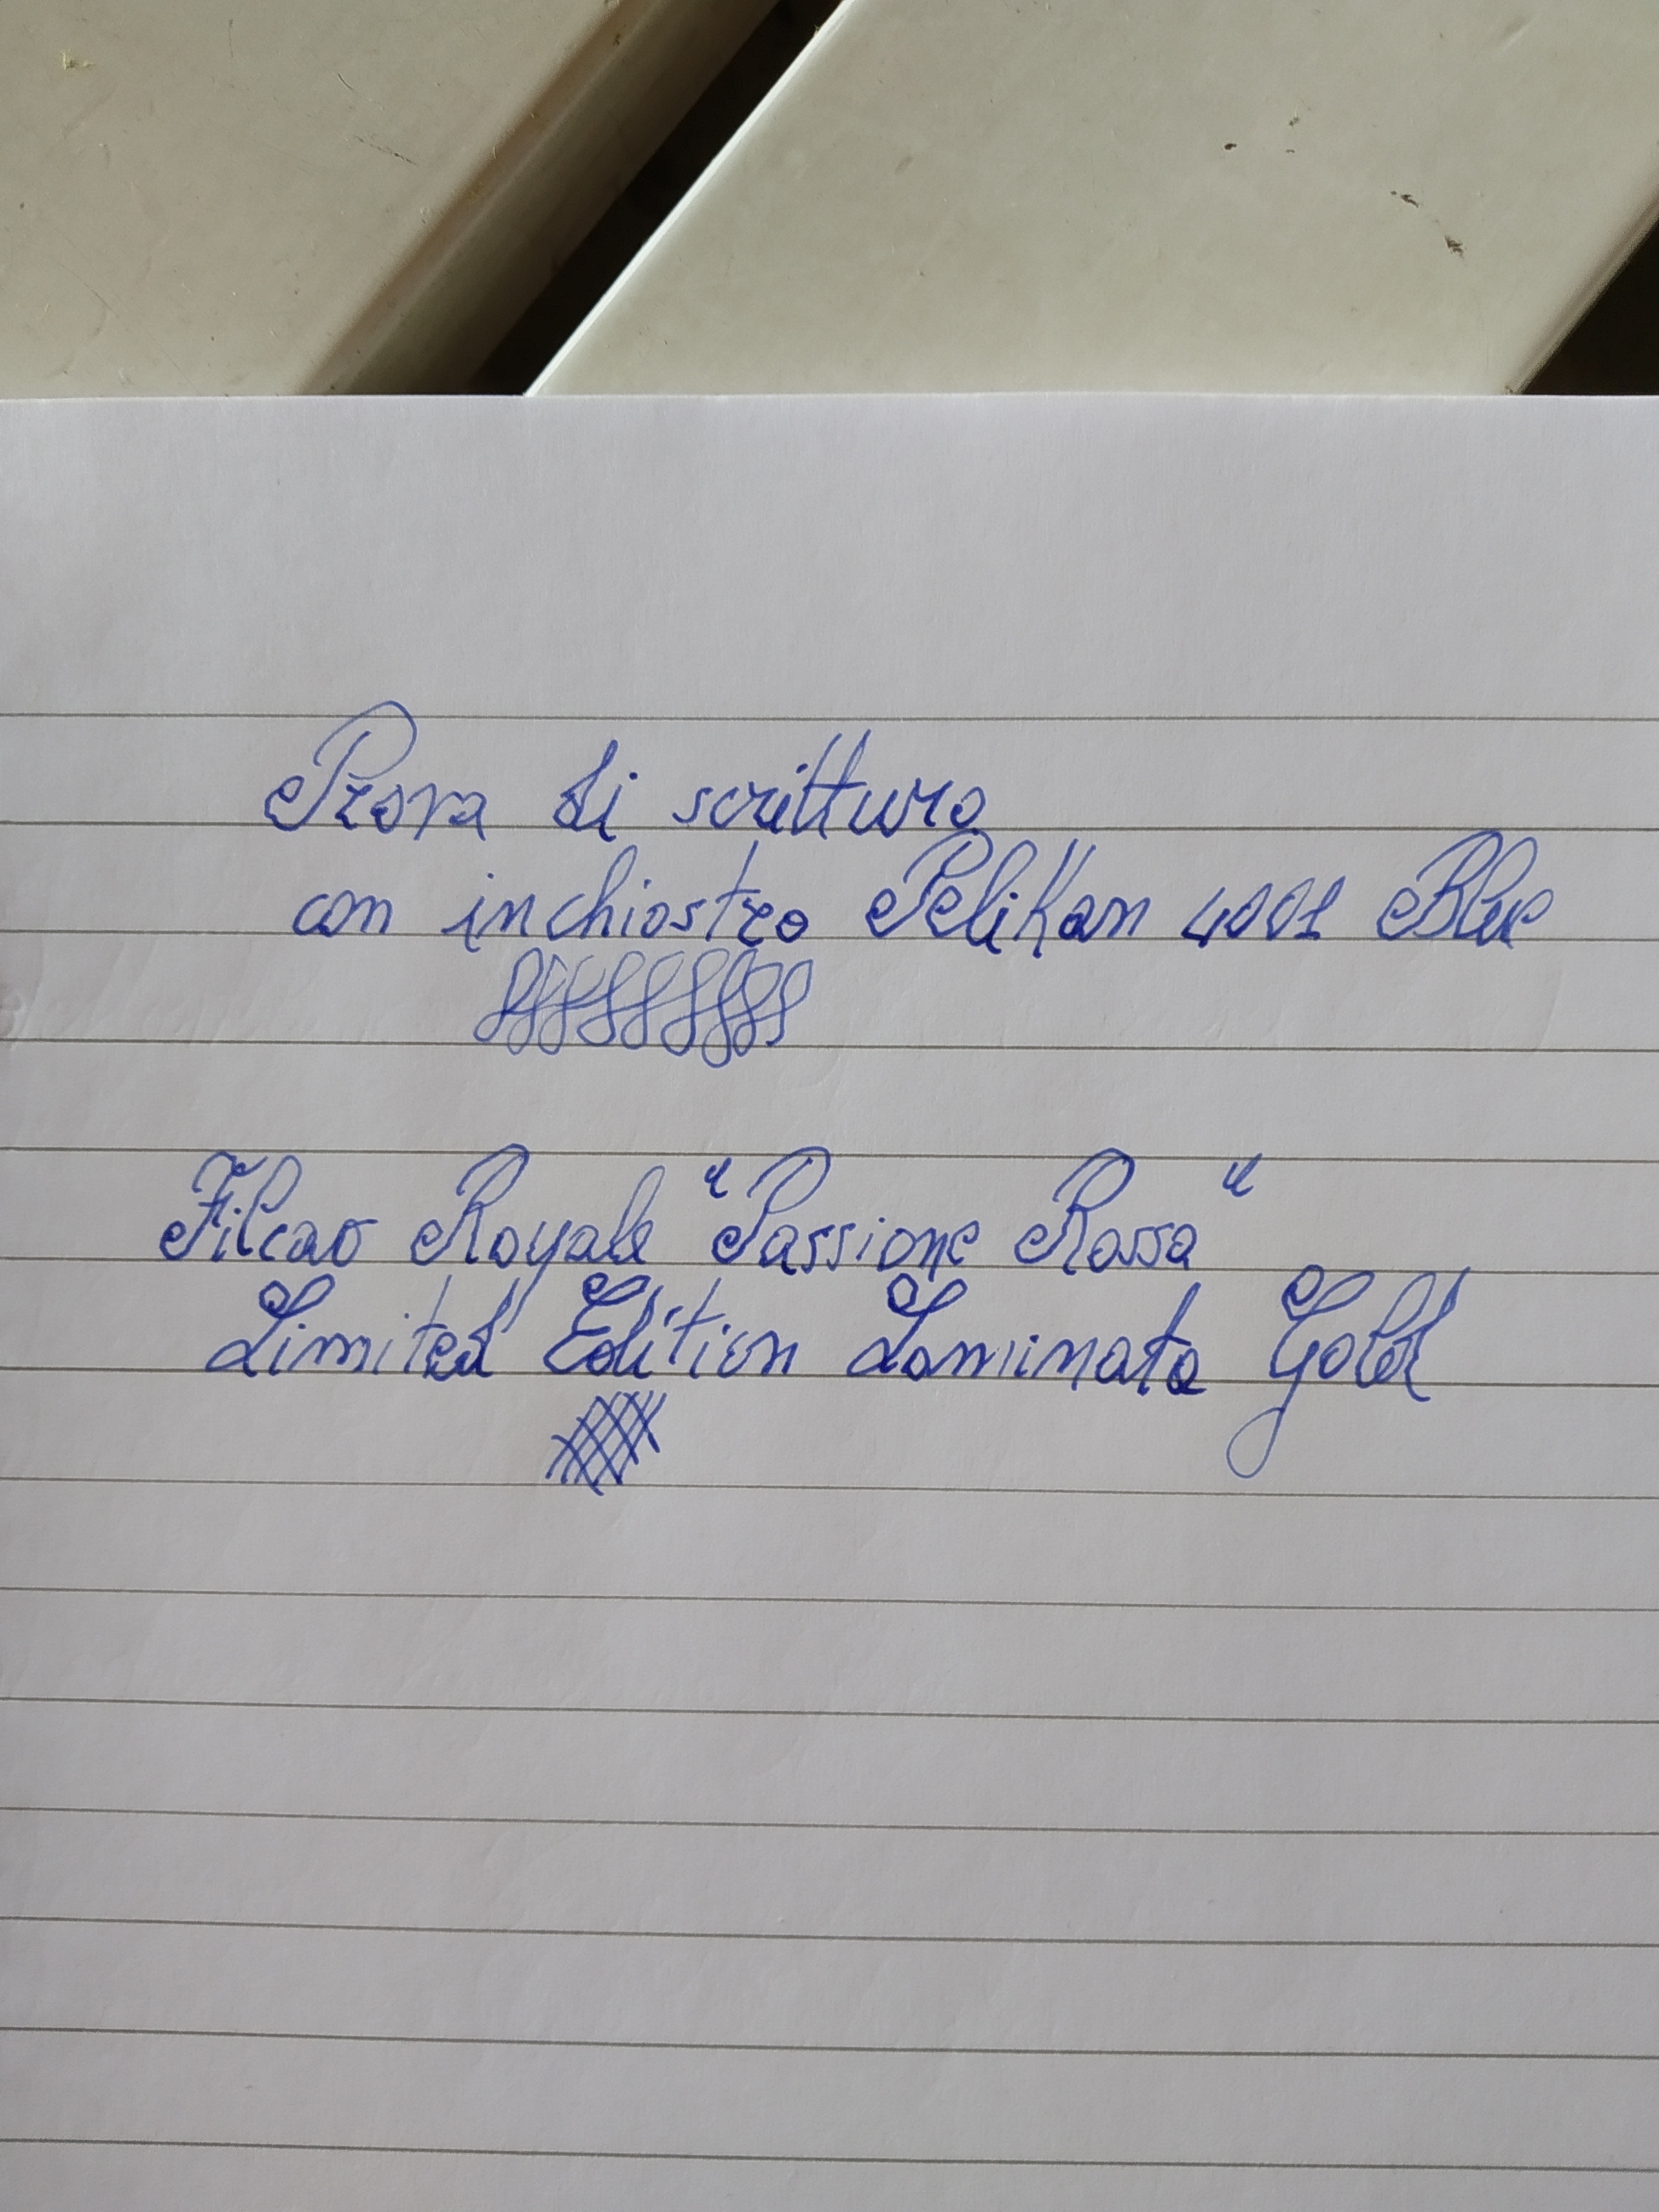 Prova di scrittura
con inchiostro Pelikan 4001 Blue
Filcao Royale "Passione Rossa"
Limited Edition Laminato Gold